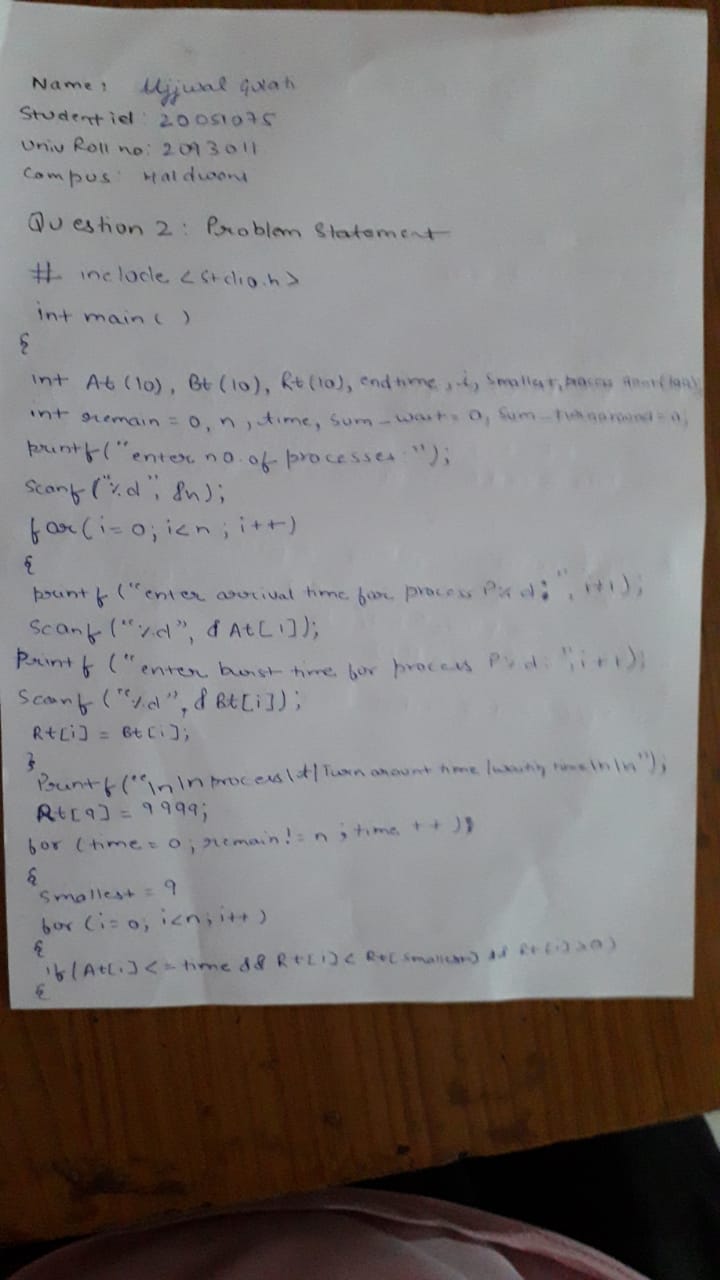 Name: Ujjwal
Student id: 20051075
Univ Roll no: 2093011
Campus: Haldwani
Question 2: Problem Statement
# include <stdio.h>
int main ( )
{
int At (10), Bt (10), Rt (10), endtime, i, Smallest,
int remain = 0, n, time, sum_wait = 0, sum_turnaround = 0;
printf("enter no. of processes: ");
scanf("%d", &n);
for(i=0; i<n; i++)
{
printf ("enter arrival time for process P%d: ", i+1);
Scanf ("%d", &At[i]);
Printf ("enter burst time for process P%d: ", i+1);
Scanf ("%d", &Bt[i]);
Rt[i] = Bt[i];
}
Printf ("\n\n process \t| Turn arount time | waiting time \n\n");
Rt[9] = 9999;
for (time = 0; remain != n; time ++)
{
Smallest = 9
for (i=0; i<n; i++)
{
if (At[i] <= time && Rt[i] < Rt[smallest] && Rt[i]>0)
{